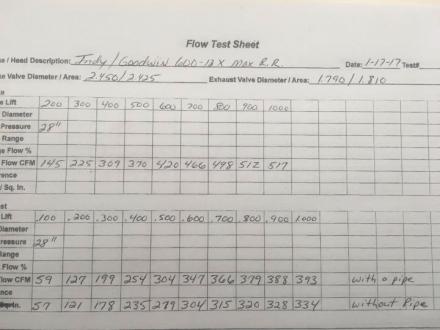 Flow Test Sheet
e / Head Description: Indy / Goodwin 600-13 X Max R.R. Date: 1-17-17 Test#
e Valve Diameter / Area: 2.450/2.425 Exhaust Valve Diameter / Area: 1.790/1.810
e Lift 200 300 400 500 600 700 800 900 1000
Diameter
Pressure 28"
Range
e Flow %
Flow CFM 145 225 309 370 420 466 498 512 517
rence
/ Sq. In.
st
Lift .100 .200 .300 .400 .500 .600 .700 .800 .900 1.000
Diameter
ressure 28"
Range
Flow %
low CFM 59 127 199 254 304 347 366 379 388 393 with a pipe
nce
57 121 178 235 279 304 315 320 328 334 without Pipe